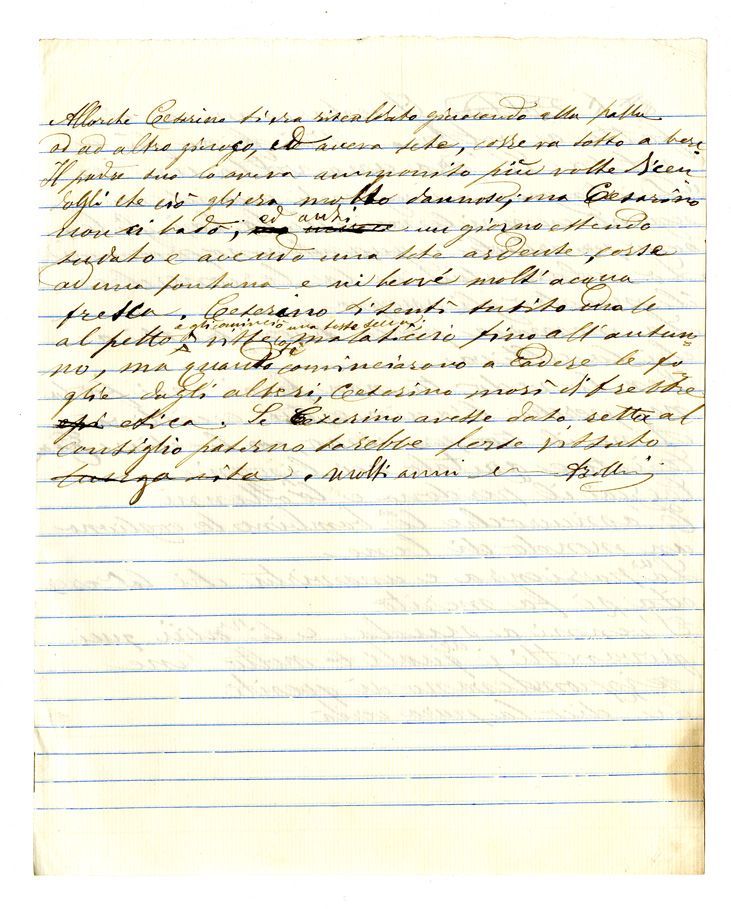 Allorchè Cesarino si era riscaldato giuocando alla palla
od ad altro giuoco, ed aveva sete, correva tosto a bere
Il padre suo lo aveva ammonito più volte dicen
dogli che ciò gli era molto dannoso; ma Cesarino
non vi badò; ed anzi un giorno essendo
sudato e avendo una sete ardente, corse
ad una fontana e vi bevé molt'acqua
fresca. Cesarino si sentì subito male
al petto e gli cominciò una tosse secca,
visse malaticcio così fino all'autun=
no, ma quando cominciarono a cadere le fo
glie dagli alberi, Cesarino morì di febbre
etica. Se Cesarino avesse dato retta al
consiglio paterno sarebbe forse vissuto
lunga vita. molti anni e